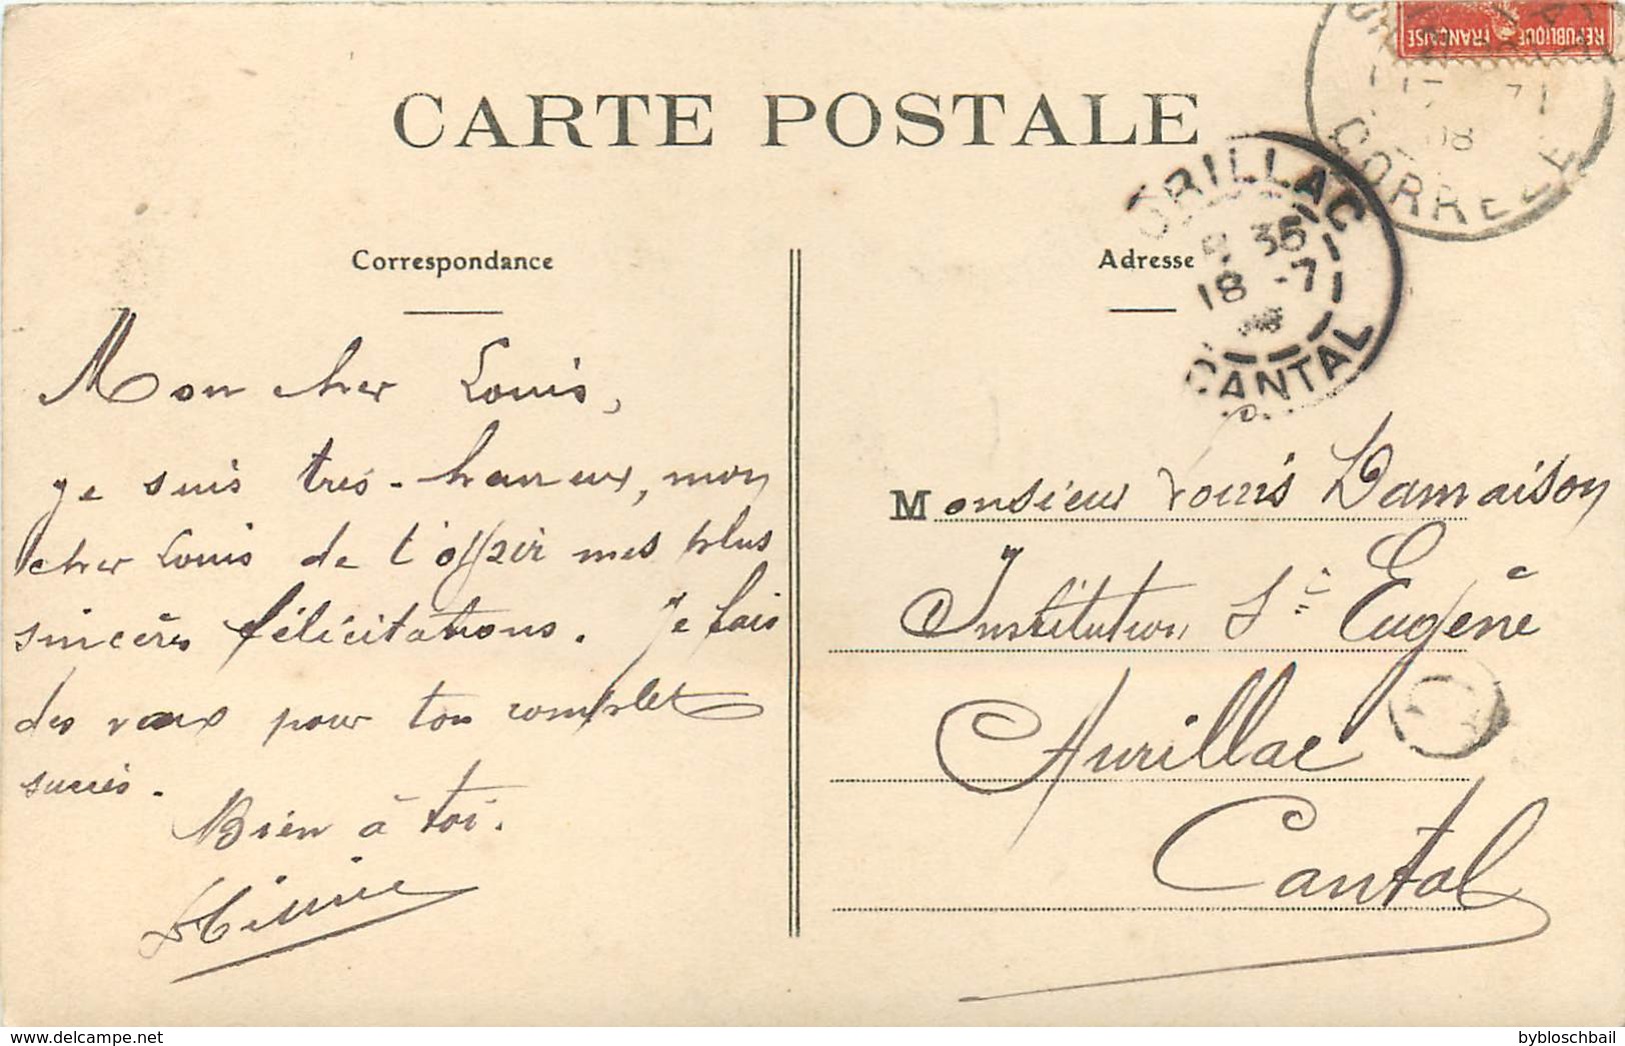 CARTE POSTALE
REPUBLIQUE FRANÇAISE
17 7
08
CORREZE
ORILLAC
35
18 -7
CANTAL
Correspondance
Mon cher Louis,
Je suis très-heureux, mon
cher Louis de t'offrir mes plus
sincères félicitations. Je fais
des vœux pour ton complet
succès.
Bien à toi.
Adresse
Monsieur Louis Damaison
Institution St Eugène
Aurillac
Cantal
delcampe.net
bybloschbail